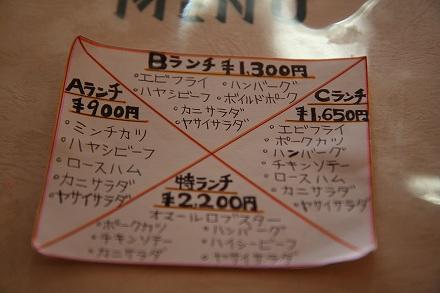 MENU
Bランチ ¥1,300円
・エビフライ ・ハンバーグ
・ハヤシビーフ ・ボイルドポーク
・カニサラダ
・ヤサイサラダ
Aランチ
¥900円
・ミンチカツ
・ハヤシビーフ
・ロースハム
・カニサラダ
・ヤサイサラダ
Cランチ
¥1,650円
・エビフライ
・ポークカツ
・ハンバーグ
・チキンソテー
・ロースハム
・カニサラダ
・ヤサイサラダ
特ランチ
¥2,200円
・オマールロブスター
・ポークカツ ・ハンバーグ
・チキンソテー ・ハイシービーフ
・カニサラダ ・ヤサイサラダ